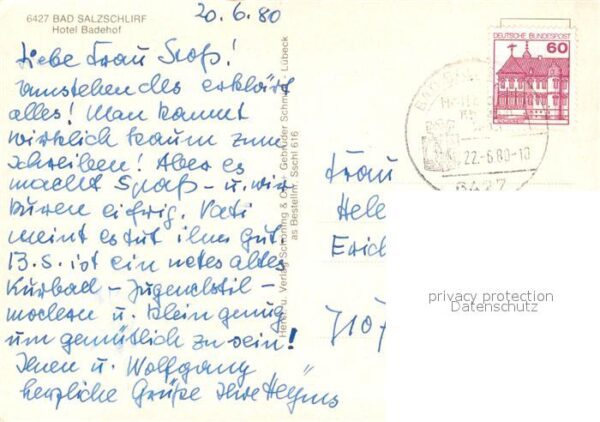 6427 BAD SALZSCHLIRF
Hotel Badehof
20.6.80
Liebe Frau Stoß!
umstehendes erklärt
alles! Man kommt
wirklich kaum zum
Schreiben! Aber es
macht Spaß - u. wir
kuren eifrig. Vati
meint es tut ihm gut.
B.S. ist ein nettes altes
Kurbad - Jugendstil -
modern u. klein genug
um gemütlich zu sein!
Ihnen u. Wolfgang
herzliche Grüße Ihre
Herst. u. Verlag Schöning & Co + Gebrüder Schmidt, Lübeck
as Bestellnr. Sschl 616
DEUTSCHE BUNDESPOST
60
BAD
22.-6.80-10
6427
Frau
Hele
Erich
7107
privacy protection
Datenschutz